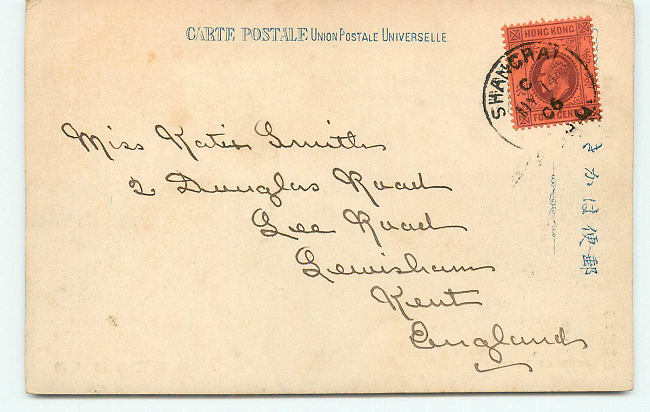 CARTE POSTALE UNION POSTALE UNIVERSELLE
HONG KONG
FOUR CENTS
SHANGHAI
C
14
06
Miss Katie Smith
2 Douglas Road
Lee Road
Lewisham
Kent
England
きかは便郵